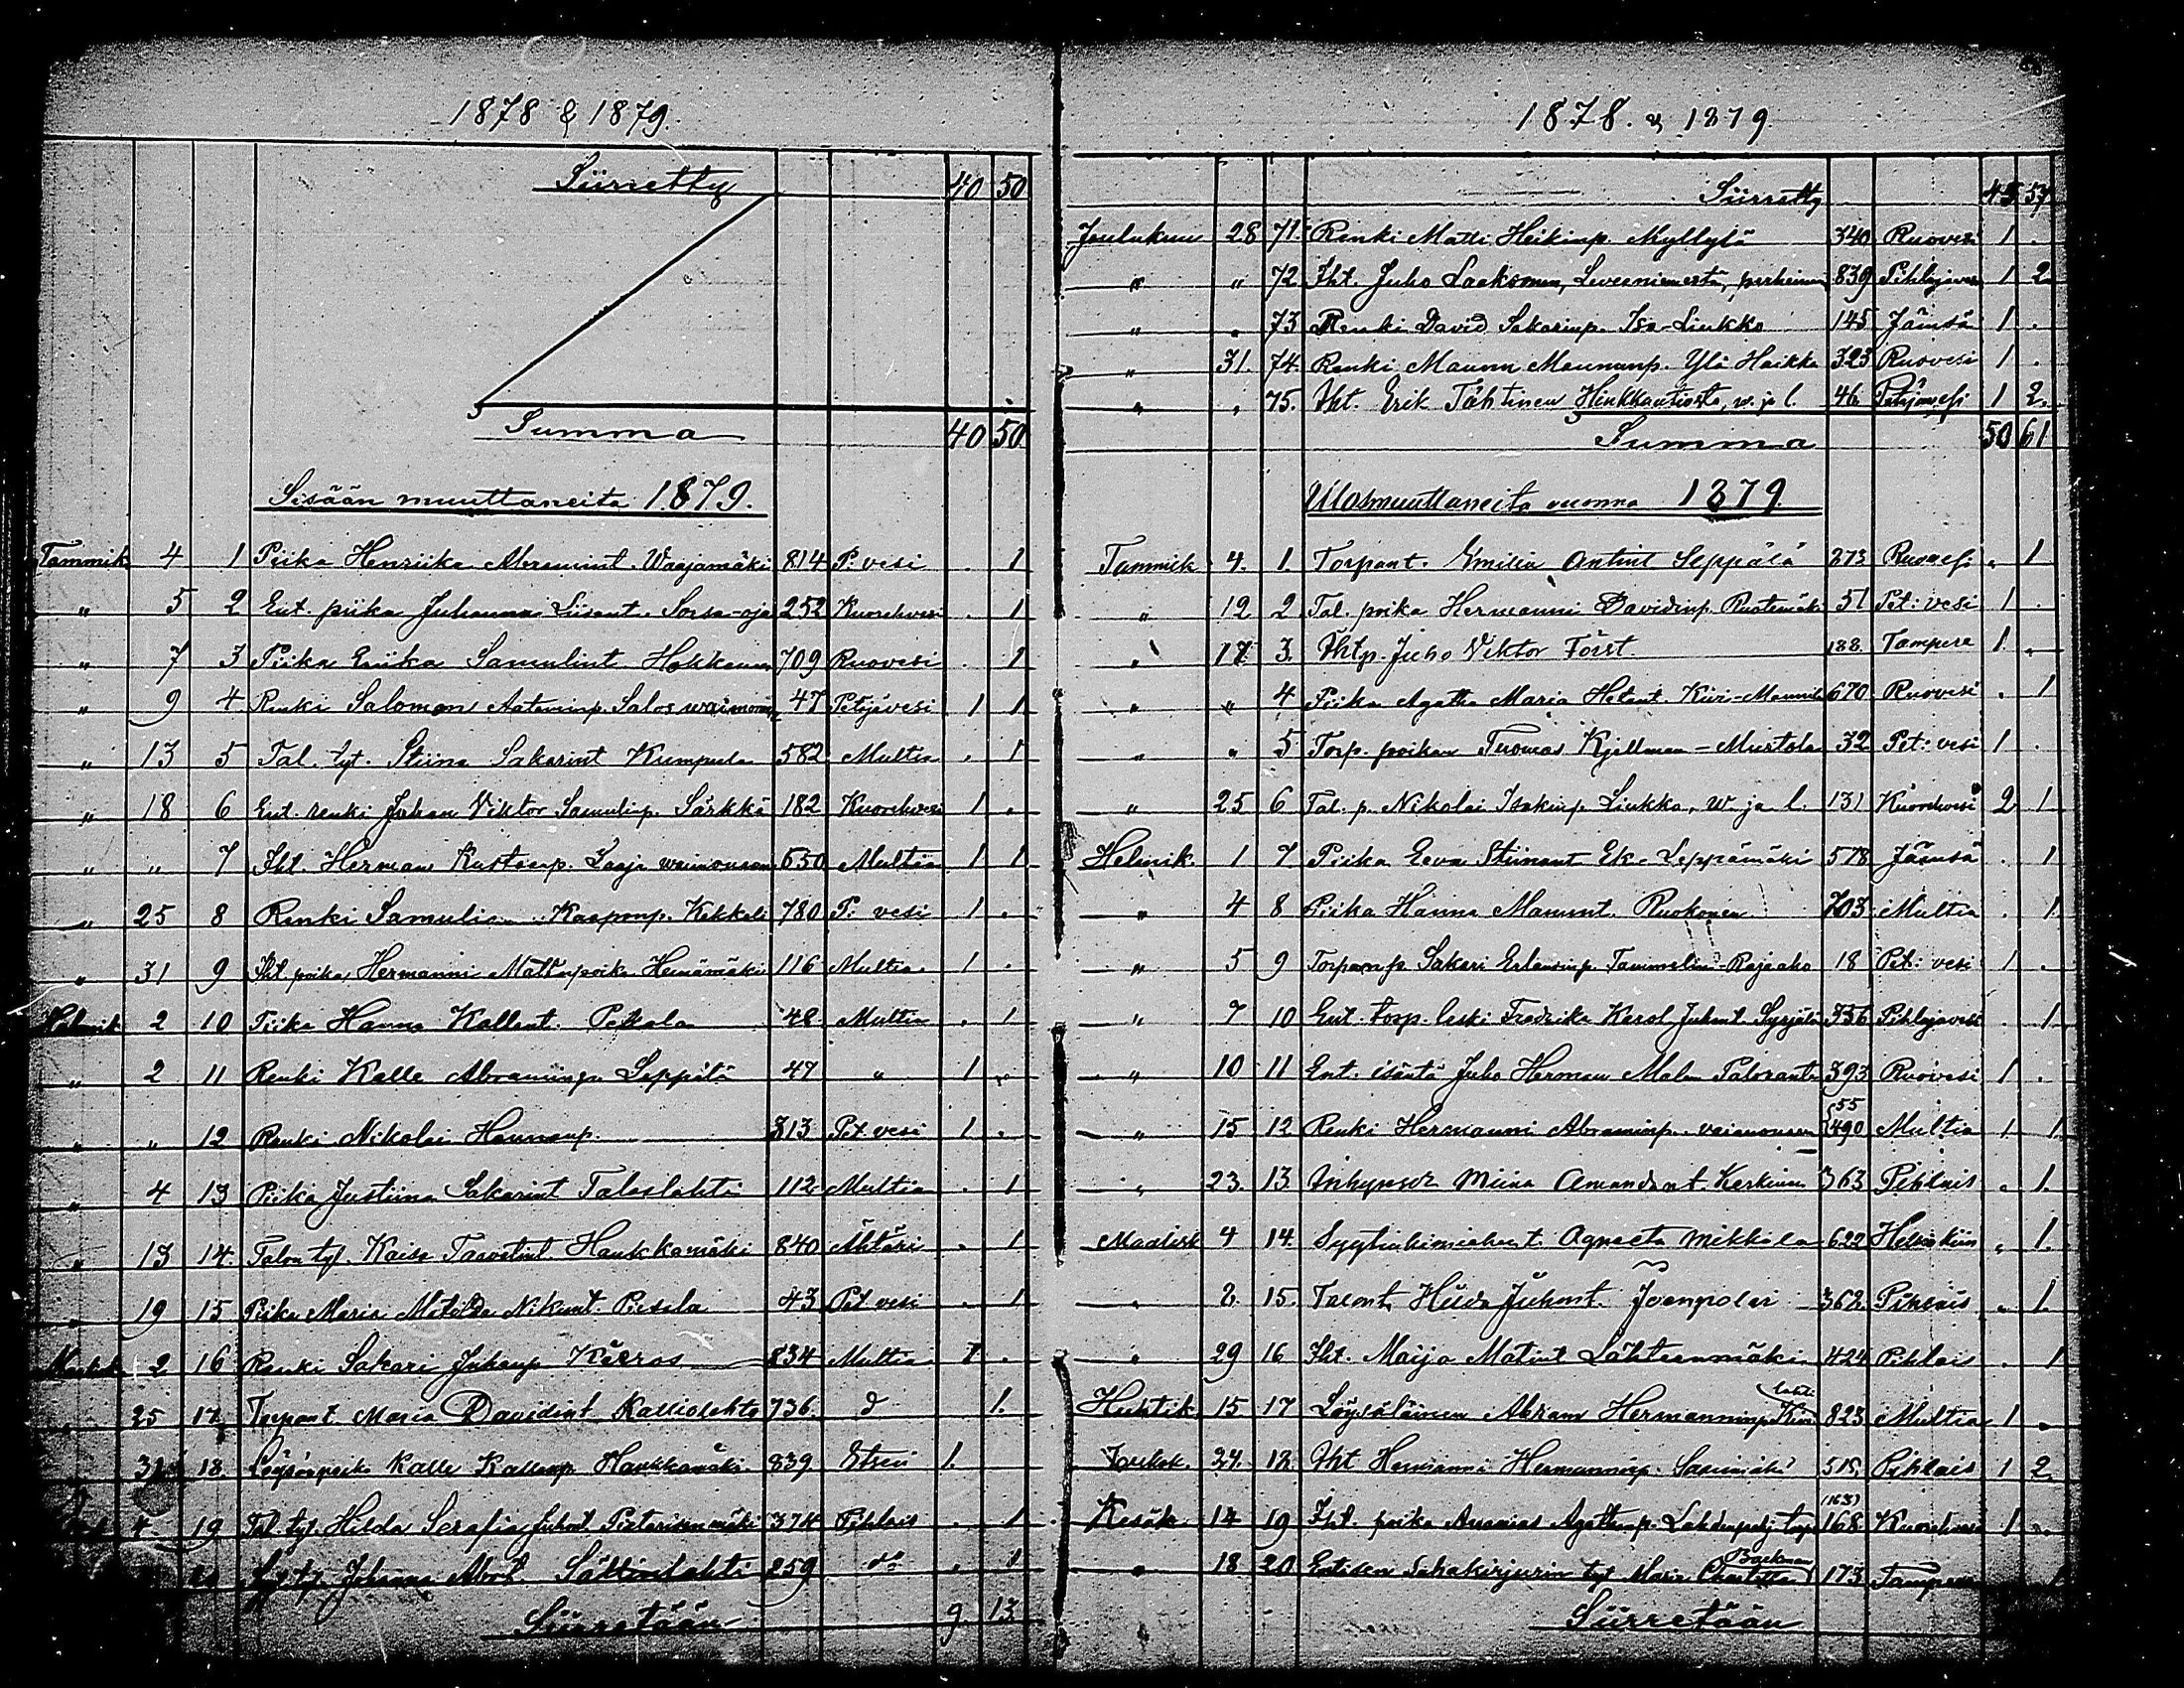 1878 & 1879.
Siirretty 40 50
Summa 40 50
Sisään muuttaneita 1879.
Tammik. 4 1 Piika Henriika Abramint. Waajamäki 814 P: vesi . 1
" 5 2 Ent. piika Juhanna Liisant. Sorsa-oja 252 Kuorehvesi . 1
" 7 3 Piika Eriika Samulint Hokkanen 709 Ruovesi . 1
" 9 4 Renki Salomon Aataminp. Salos waimonsa 47 Petäjävesi 1 1
" 13 5 Tal. tyt. Stiina Sakarint Kumpula 582 Multia . 1
" 18 6 Ent. renki Juhan Viktor Samulinp. Särkkä 182 Kuorehvesi 1 .
" " 7 Iht. Herman Kustaanp. waimonsa 650 Multia 1 1
" 25 8 Renki Samulia Kaaponp. Kekkola 780 P: vesi 1 .
" 31 9 Iht. poika Hermanni Matinpoika Heinämäki 116 Multia 1 .
Helmik 2 10 Piika Hanna Kallent. Pekkala 48 Multia . 1
" 2 11 Renki Kalle Abraminp. Seppälä 47 " 1 .
" " 12 Renki Nikolai Hannanp. 813 Pet. vesi 1 .
" 4 13 Piika Justiina Sakarint Taloslahti 112 Multia . 1
" 13 14. Talon tyt. Kaisa Taavetint Haukkamäki 840 Ähtäri . 1
" 19 15 Piika Maria Matilda Nikunt. Piesala 43 Pet vesi . 1
2 16 Renki Sakari Juhanp 834 Multia 1 .
" 25 17 Torpant. Maria Davidint Kalliolahto 736. d 1.
31 18. Kalle Kallenp Haukkamäki 839 Etseri 1.
4. 19 Tal. tyt. Hilda Serafia Juhant. 374 Pihlais . 1
20 Johanna 259 do . 1
Siirretään 9 13
1878. & 1879
Siirretty 45 57
Joulukuu 28 71. Renki Matti Heikinp. Myllylä 340 Ruovesi 1 .
" " 72. Iht. Juho Laaksonen, perheineen 839 Pihlajavesi 1 2
" " 73 Renki David Sakarinp. Iso-Liukko 145 Jämsä 1 .
" 31. 74. Renki Maunu Maununp. Ylä Haikka 323 Ruovesi 1 .
" " 75. Iht. Erik Tähtinen w. ja l. 46 Petäjävesi 1 2.
Summa 50 61
Ulosmuuttaneita vuonna 1879.
Tammik 4. 1. Torpant. Emilia Antint Seppälä 273 Ruovesi . 1
" 12 2 Tal. poika Hermanni Davidinp. 51 Pet: vesi 1 .
" 17 3. Ihtp. Juho Viktor Först 188. Tampere 1 .
" " 4 Piika Agatha Maria Kivi-Mannila 670 Ruovesi . 1
" " 5 Torp. poikan Tuomas Kjellman - Mustola 32 Pet: vesi 1 .
" 25 6 Tal. p. Nikolai Isakinp Liukko, w. ja l. 131 Kuorehvesi 2 1
Helmik. 1 7 Piika Eeva Stiinant Leppämäki 578 Jämsä . 1
" 4 8 Piika Hanna Ruokonen 703 Multia . 1
" 5 9 Torpanp Sakari Tammelin - Rajaaho 18 Pet: vesi 1 .
" 7 10 Ent. torp. leski Fredrika Karol. Juhont. Syrjälä 356 Pihlajavesi . 1
" 10 11 Ent. isäntä Juho Herman Malm Paloranta 393 Ruovesi 1 .
" 15 12 Renki Hermanni Abraminp. vaimonsa {55 490 Multia 1 1
" 23. 13 Miina Amandant. Kerkinen 363 Pihlais . 1.
Maalisk 4 14. Agneeta Mikkola 622 Helsinkiin . 1.
" 2. 15. Talont. Hilda Juhont. 362 Pihlais . 1.
" 29 16 Iht. Maija Matint Lähteenmäki 424 Pihlais . 1
Huhtik. 15 17 Löysäläinen Abram Hermanninp. Kivilahti 823 Multia 1 .
Toukok. 24. 18. Iht Hermanni Hermanninp. 518 Pihlais 1 2.
Kesäk 14 19 Iht. poika Ananias (163) 168 Kuorehvesi 1 .
" 18 20 Entisen Sahakirjurin tyt. Maria Charlotta Backman 173 Tampere 1
Siirretään